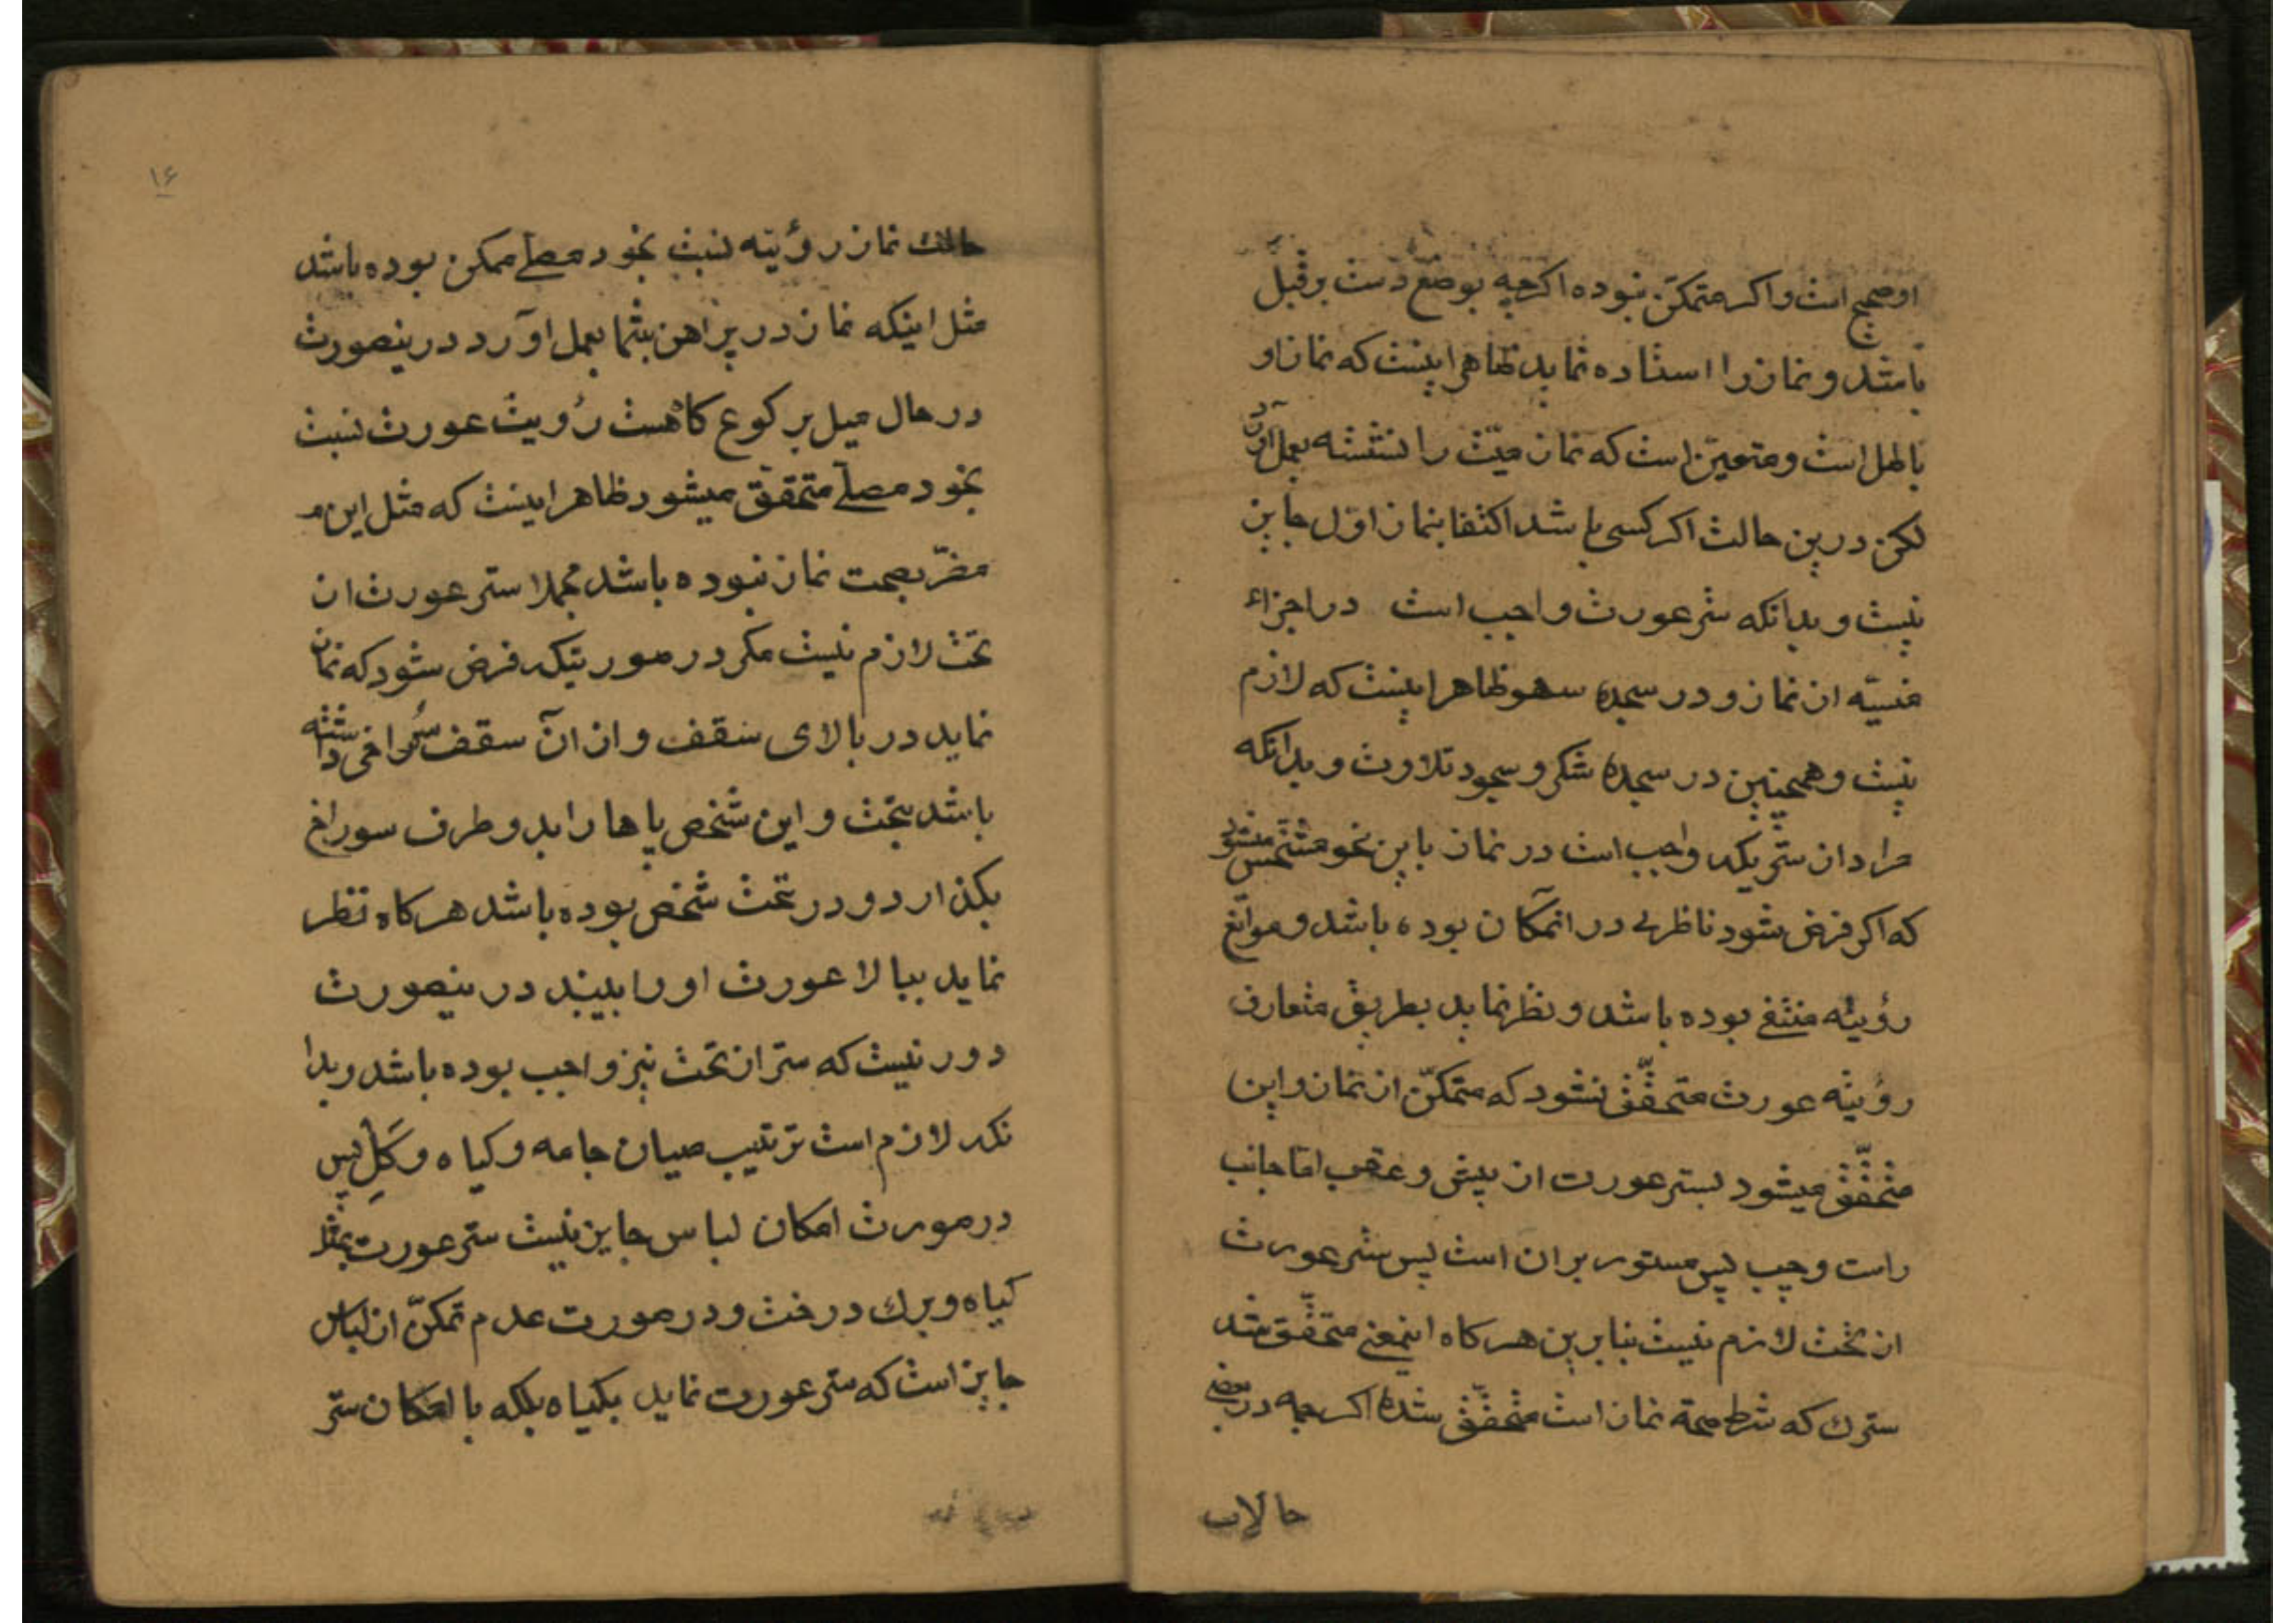 او صحیح است و اکر متمکن نبوده اکرچه بوضع دست بر قبل
باشد و نماز را استاده نماید ظاهر اینست که نماز او
باطل است و متعین است که نماز میت را ننشسته بعمل آورد
لکن در ین حالت اکر کسی باشد اکتفا بنماز اول جایز
نیست و بدانکه ستر عورت واجب است در اجزاء
منسیّه از نماز و در سجده سهو ظاهر اینست که لازم
نیست و همچنین در سجده شکر و سجود تلاوت و بدانکه
مراد از ستریکه واجب است در نماز باین نحو مشخص میشود
که اکر فرض شود ناظری در انمکان بوده باشد و موانع
رؤیته منتفی بوده باشد و نظر نماید بطریق متعارف
رؤیته عورت متحقّق نشود که متمکنّ از نماز و این
متحقّق میشود بستر عورت از پیش و عقب اما جانب
راست و چپ پس مستور بران است پس ستر عورت
از تحت لازم نیست بنابرین هر کاه اینمعنی متحقّق شد
سترك که شرط صحة نماز است متحقّق شده اکرچه در بعضی
حالات
۱۶
حالت نماز رؤیته نسبت بخود مصلے ممکن بوده باشد
مثل اینکه نماز در پراهن بتنها بعمل اورد درینصورت
در حال میل برکوع کاهست رؤیت عورت نسبت
بخود مصلے متحقق میشود ظاهر اینست که مثل این مـ
مضرّ بصحت نماز نبوده باشد مجملا ستر عورت از
تحت لازم نیست مکر در صورتیکه فرض شود که نماز
نماید در بالای سقف و از آن سقف سُراخی داشته
باشد بتحت و این شخص پاها را بدو طرف سوراخ
بکذارد و در تحت شخص بوده باشد هر کاه نظر
نماید ببالا عورت او را ببیند درینصورت
دور نیست که ستر از تحت نیز واجب بوده باشد و بدا
نکه لازم است ترتیب میان جامه و کیاه و کِل پس
در صورت امکان لباس جایز نیست ستر عورت بمثل
کیاه و برك درخت و در صورت عدم تمکنّ از لباس
جایز است که ستر عورت نماید بکیاه بلکه با امکان ستر